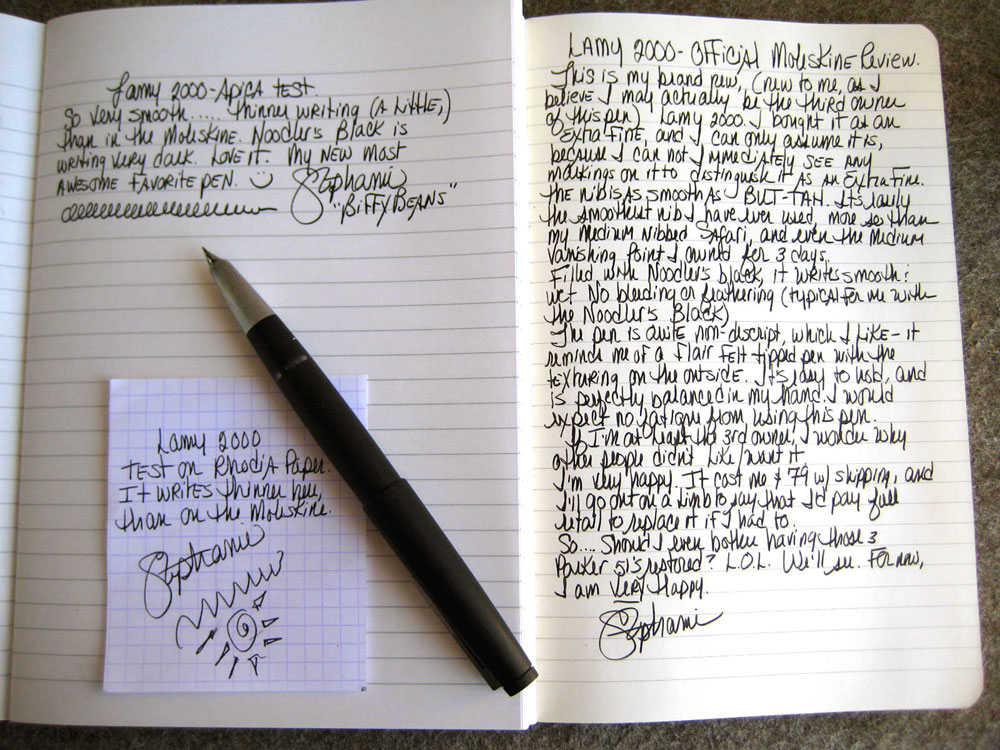 Lamy 2000-Apica Test
So very smooth..... thinner writing (a little,)
than in the Moleskine. Noodler's Black is
writing very dark. Love it. My new most
awesome favorite pen.
Stephanie
"Biffybeans"
Lamy 2000
Test on Rhodia Paper.
It writes thinner here,
than on the Moleskine.
Stephanie
Lamy 2000- Official Moleskine Review.
This is my brand new, (new to me, as I
believe I may actually be the third owner
of this pen) Lamy 2000. I bought it as an
extra fine, and I can only assume it is,
because I can not immediately see any
markings on it to distinguish it as an extra fine.
The nib is as smooth as BUT-TAH. It's easily
the smoothest nib I have ever used, more so than
my medium nibbed Safari, and even the medium
Vanishing Point I owned for 3 days.
Filled with Noodler's black, it writes smooth &
wet. No bleeding or feathering (typical for me with
the Noodler's Black)
The pen is quite non-discript, which I like - it
reminds me of a Flair felt tipped pen with the
texturing on the outside. It's easy to hold, and
is perfectly balanced in my hand. I would
expect no fatigue from using this pen.
If I'm at least the 3rd owner, I wonder why
other people didn't like/want it
I'm very happy. It cost me $79 w/ shipping, and
I'll go out on a limb to say that I'd pay full
retail to replace it if I had to.
So.... Should I even bother having those 3
Parker 51's restored? L.O.L. We'll see. For now,
I am very happy.
Stephanie